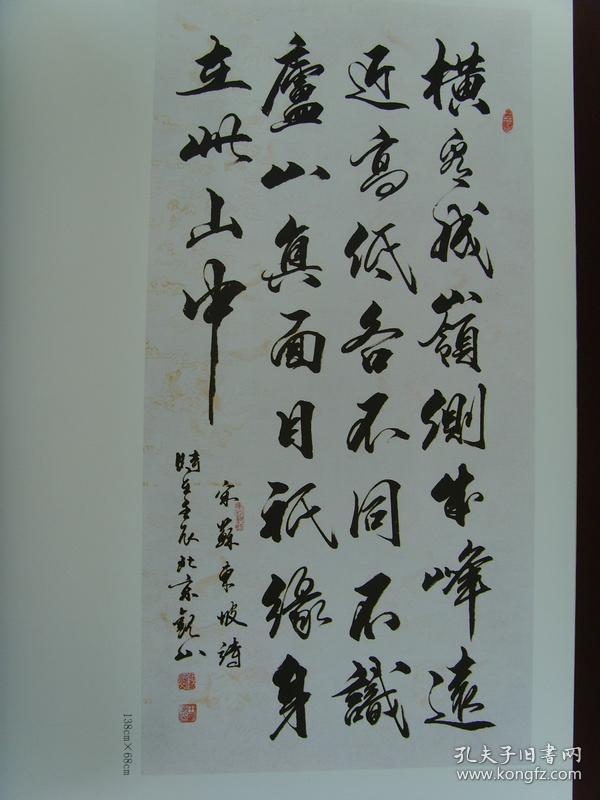 橫看成嶺側成峰遠
近高低各不同不識
廬山真面目祇緣身
在此山中
宋蘇東坡詩
時在壬辰北京觀山
138cm×68cm
孔夫子旧书网
www.kongfz.com